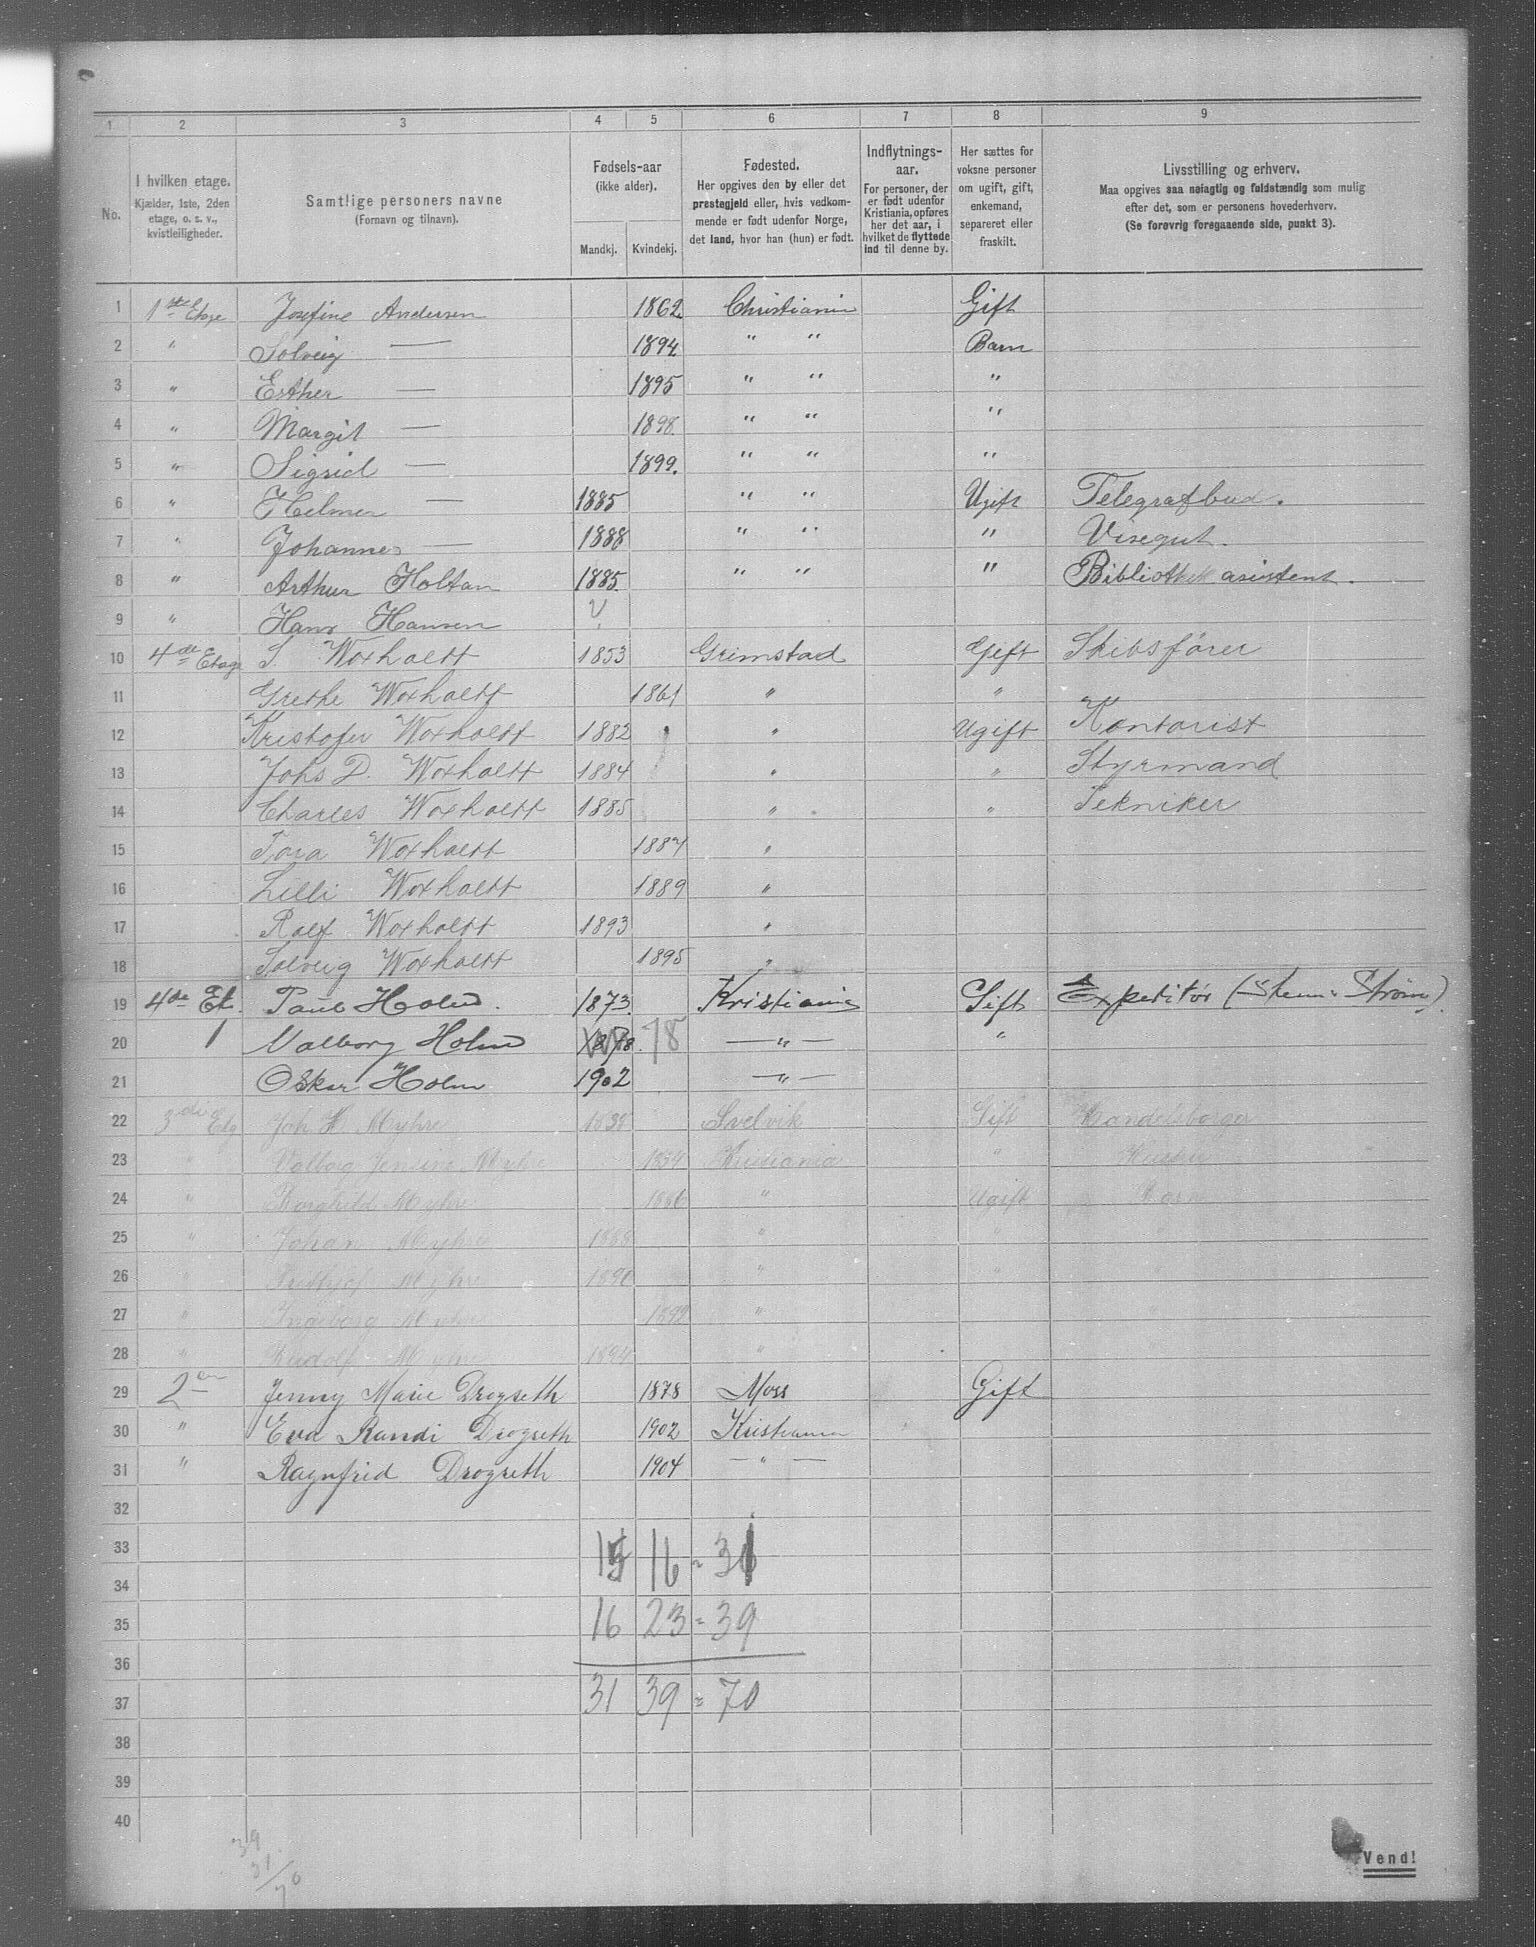 1 2 3 4 5 6 7 8 9
No.
I hvilken etage.
Kjælder, 1ste, 2den
etage, o. s. v.,
kvistleiligheder.
Samtlige personers navne
(Fornavn og tilnavn).
Fødsels-aar
(ikke alder).
Mandkj. Kvindekj.
Fødested.
Her opgives den by eller det
prestegjeld eller, hvis vedkom-
mende er født udenfor Norge,
det land, hvor han (hun) er født.
Indflytnings-
aar.
For personer, der
er født udenfor
Kristiania, opføres
her det aar, i
hvilket de flyttede
ind til denne by.
Her sættes for
voksne personer
om ugift, gift,
enkemand,
separeret eller
fraskilt.
Livsstilling og erhverv.
Maa opgives saa nøiagtig og fuldstændig som mulig
efter det, som er personens hovederhverv.
(Se forøvrig foregaaende side, punkt 3).
1 1ste Etage Josefine Andersen 1862 Christiania Gift
2 " Solveig — 1894 " " Barn
3 " Esther — 1895 " " "
4 " Margit — 1898 " " "
5 " Sigrid — 1899. " " "
6 " Helmer — 1885 " " Ugift Telegrafbud.
7 " Johannes — 1888 " " " Visegut.
8 " Arthur Holtan 1885. " " " Bibliothek asistent.
9 " Hans Hansen
10 4de Etage S. Woxholtt 1853 Grimstad Gift Skibsfører
11 Grethe Woxholtt 1861 " "
12 Kristofer Woxholtt 1882 " Ugift Kontorist
13 Johs D. Woxholtt 1884 " " Styrmand
14 Charles Woxholtt 1885 " " Tekniker
15 Tora Woxholtt 1887 "
16 Lilli Woxholtt 1889 "
17 Ralf Woxholtt 1893 "
18 Solveig Woxholtt 1895 "
19 4de Et. Paul Holm. 1873. Kristiania Gift Expeditør (Steen & Strøm).
20 Valborg Holm 1878. 78 — " — "
21 Oskar Holm 1902 — " —
22 3die Etg Joh H Myhre 1838 Svelvik Gift Handelsborger
23 " Valbog Jensine Myhre 1854 Kristiania " Hustru
24 " Borghild Myhre 1886 " Ugift
25 " Johan Myhre 1888 " " "
26 " Fridtjof Myhre 1890 " " "
27 " Ingeborg Myhre 1892 " "
28 " Rudolf Myhre 1894 "
29 2en Jenny Marie Drogseth 1878 Moss Gift
30 " Eva Randi Drogseth 1902 Kristiania
31 " Ragnfrid Drogseth 1904 — " —
32
33 15 16 = 31
34
35 16 23 = 39
36
37 31 39 = 70
38
39
40
39
31
70
Vend!